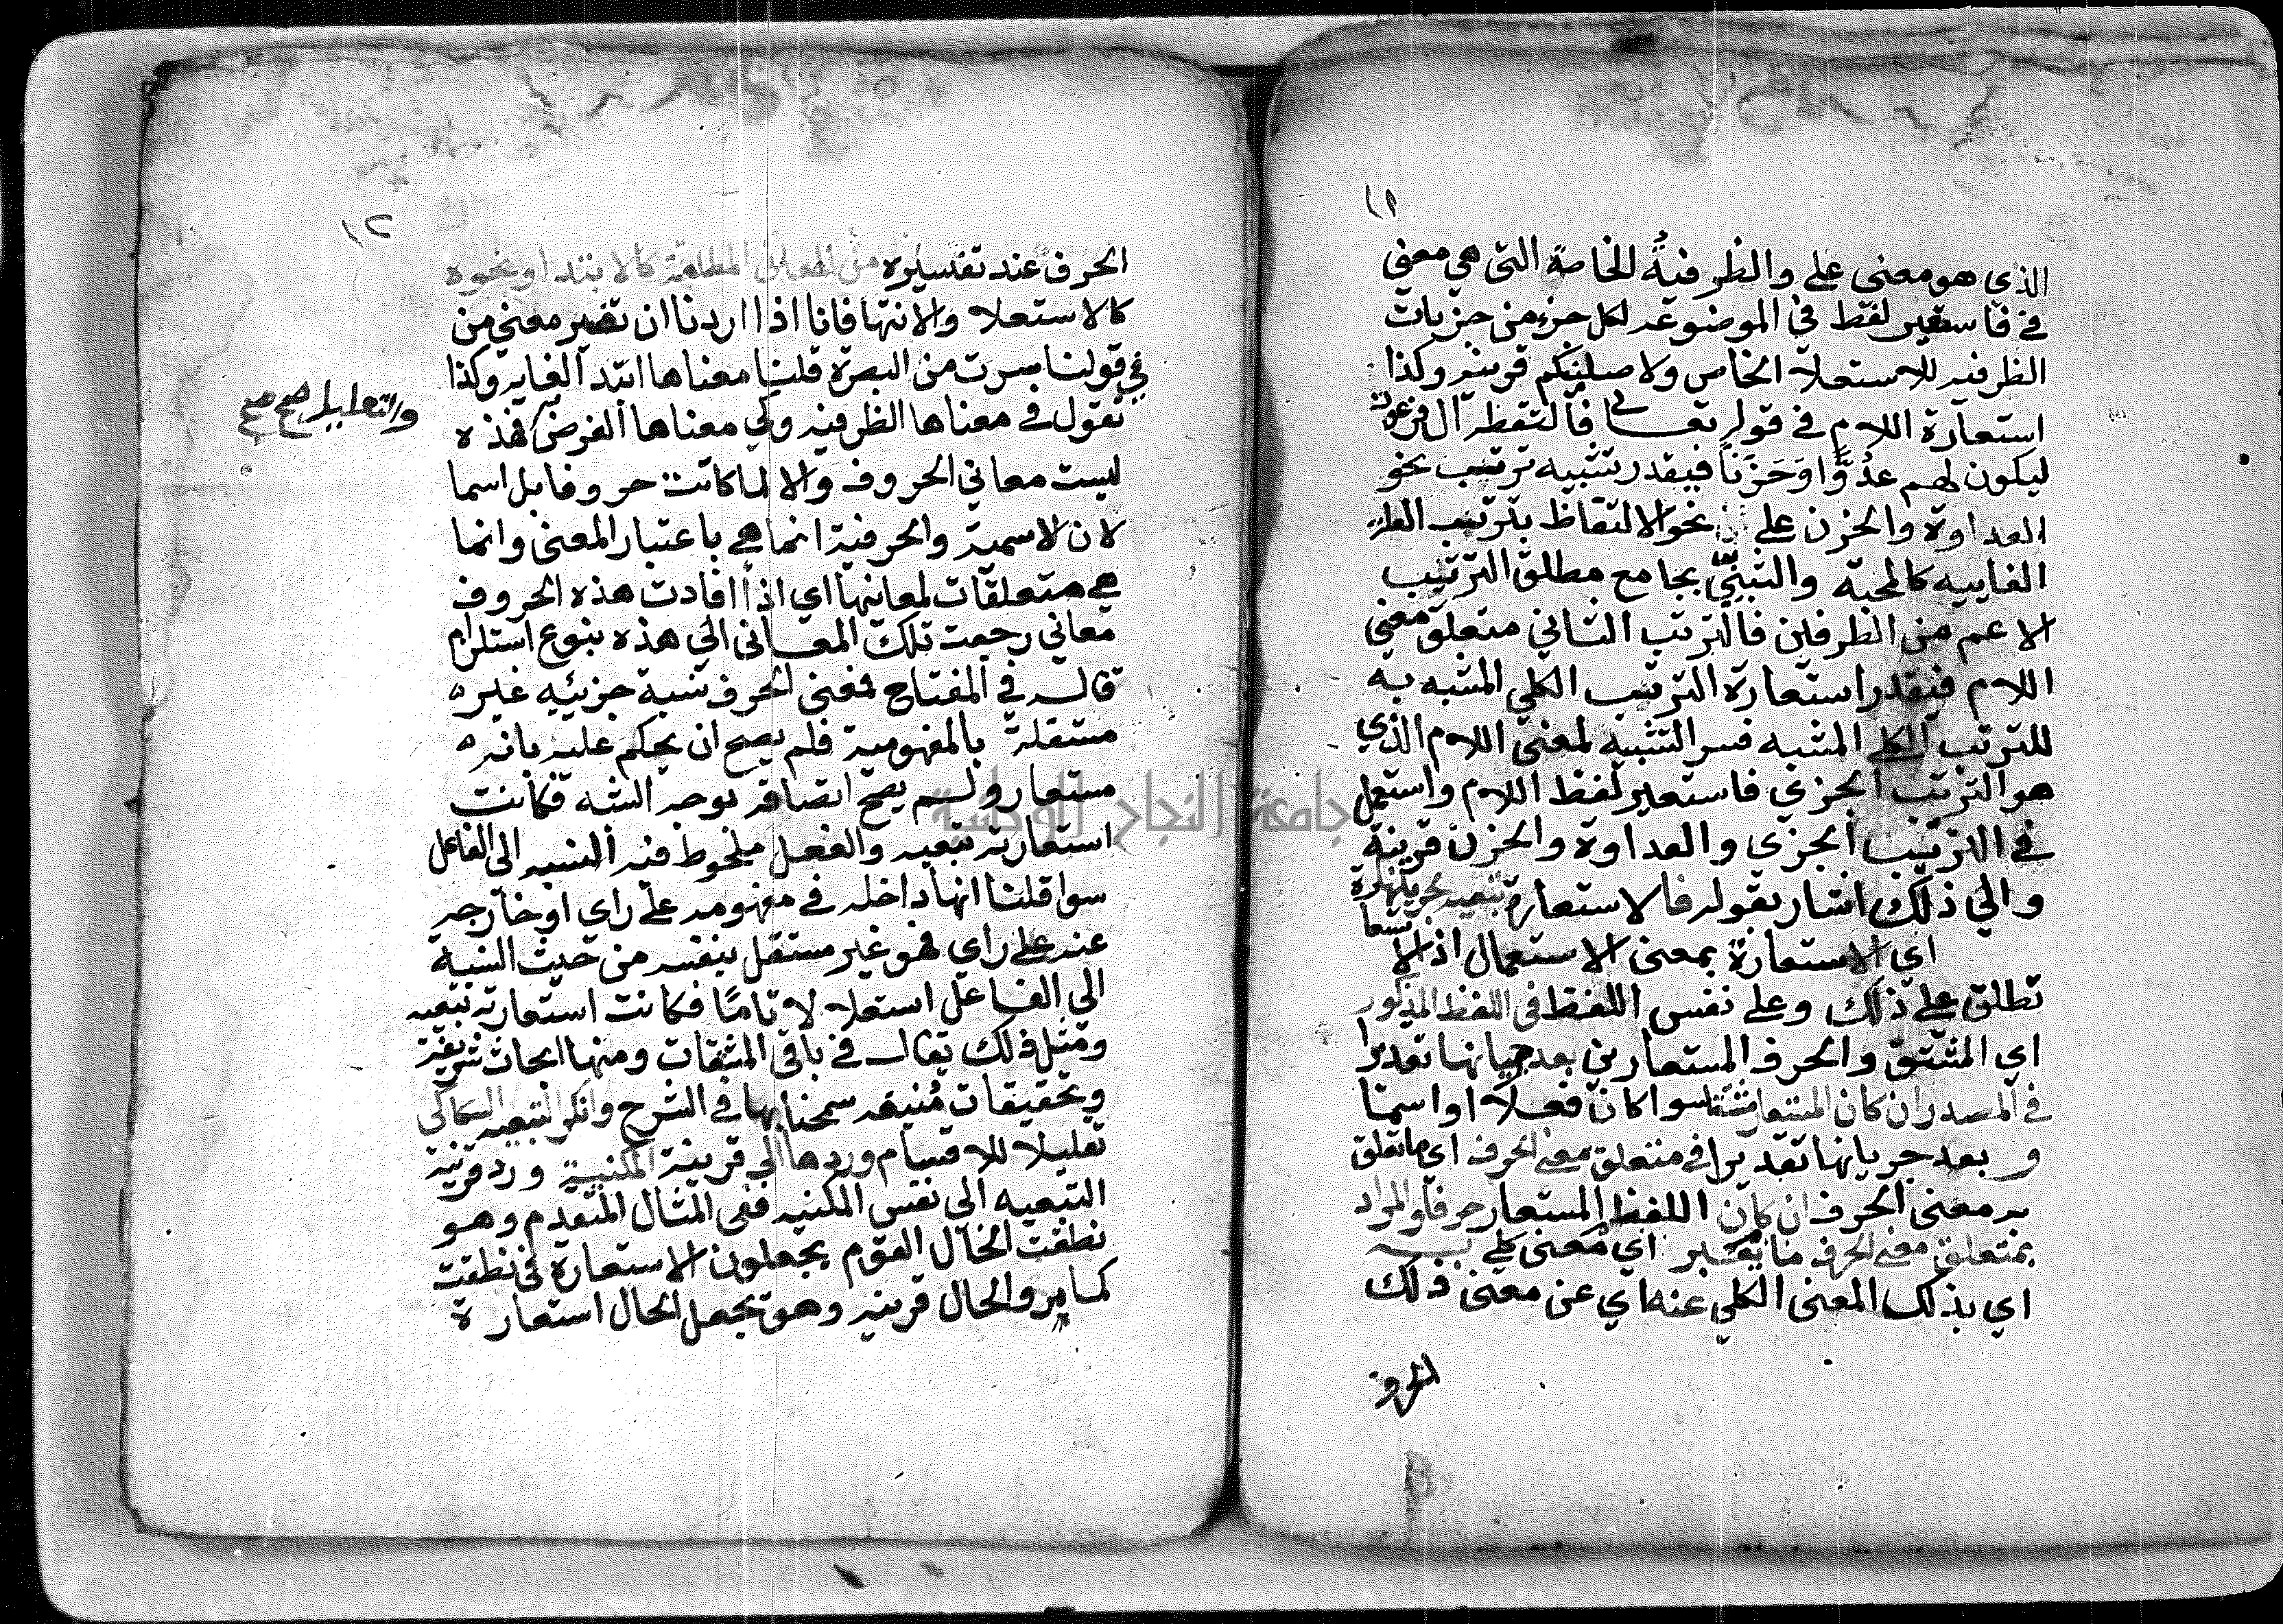 ١١
الذي هو معنى على والظرفيةُ الخاصة التي هي معنى
في فاستعير لفظ في الموضوعه لكل جزء من جزيات
الظرفيه للاستعلا الخاص ولاصلبنكم قرينه وكذا
استعارة اللام في قوله تعالى فالتقطه ال فرعون
ليكون لهم عدُوًّا وَحَزَناً فيقدر تشبيه ترتيب نحو
العداوة والحزن على نحو الالتقاظ بترتيب العله
الغاييه كالمحبة والتبنّي بجامع مطلق الترتيب
الاعم من الطرفين فالترتب الثاني متعلق معنى
اللام فيقدر استعارة الترتيب الكلي المشبه به
للترتب الكلي المشبه فسر التشبيه لمعنى اللام الذي
هو الترتب الجزي فاستعير لفظ اللام واستعمل
في الترتيب الجزي والعداوة والحزن قرينة
والي ذلك اشار بقوله فالاستعارة تبعيه لجريانها
اي الاستعارة بمعنى الاستعمال اذ الاستعا
تطلق على ذلك وعلى نفس اللفظ في اللفظ المذكور
اي المشتق والحرف المستعارين بعد جريانها تقديرا
في المصدر ان كان المستعار مشتقا سوا كان فعلا او اسما
و بعد جريانها تقديرا في متعلق معنى الحرف اي ما تعلق
به معنى الحرف ان كان اللفظ المستعار حرفا والمراد
بمتعلق معنى الحرف ما يعبر اي معنى كلي به
اي بذلك المعنى الكلي عنه اي عن معنى ذلك
الحرف
١٢
الحرف عند تفسيره من المعاني المطلقة كالابتدا ونحوه
كالاستعلا والانتها فانا اذا اردنا ان تفسير معنى من
في قولنا سرت من البصرة قلنا معناها ابتدا الغايه وكذا
نقول في معناها الظرفيه وكي معناها الغرض فهذه
والتعليل صح صح
ليست معاني الحروف والا لما كانت حروفا بل اسما
لان الاسمية والحرفية انما هي باعتبار المعنى وانما
هي متعلقات لمعانيها اي اذا افادت هذه الحروف
معاني رجعت تلك المعاني الي هذه بنوع استلزام
قال في المفتاح فمعنى الحرف نسبة جزئيه غير
مستقلة بالمفهومية فلم يصح ان يحكم عليه بانه
مستعار ولم يصح اتصافه بوجه الشبه فكانت
استعارته تبعيه والفعل ملحوظ فيه النسبه الى الفاعل
سوا قلنا انها داخله في مفهومه على راي او خارجه
عنه على راي فهو غير مستقل بنفسه من حيث النسبة
الى الفاعل استعلالا تامًا فكانت استعارته تبعيه
ومثل ذلك يقال في باقي المشتقات ومنها ابحاث شريفة
وتحقيقات مُنيفه سمحنا بها في الشرح وانكر التبعيه السكاكي
تعليلا للاقسام وردها الي قرينة المكنية ورد قرينة
التبعيه الى نفس المكنيه ففي المثال المتقدم وهو
نطقت الحال القوم يجعلون الاستعارة في نطقت
كما مر والحال قرينه وهو يجعل الحال استعارة
جامعة النجاح الوطنية